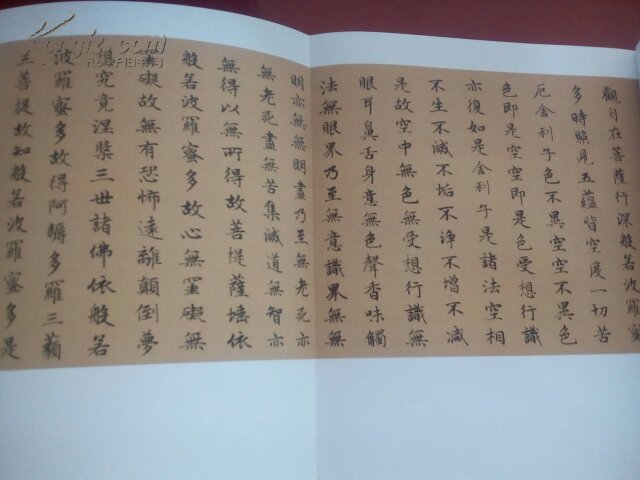 觀自在菩薩行深般若波羅蜜
多時照見五蘊皆空度一切苦
厄舍利子色不異空空不異色
色即是空空即是色受想行識
亦復如是舍利子是諸法空相
不生不滅不垢不淨不增不減
是故空中無色無受想行識無
眼耳鼻舌身意無色聲香味觸
法無眼界乃至無意識界無無
明亦無無明盡乃至無老死亦
無老死盡無苦集滅道無智亦
無得以無所得故菩提薩埵依
般若波羅蜜多故心無罣礙無
罣礙故無有恐怖遠離顛倒夢
想究竟涅槃三世諸佛依般若
波羅蜜多故得阿耨多羅三藐
三菩提故知般若波羅蜜多是